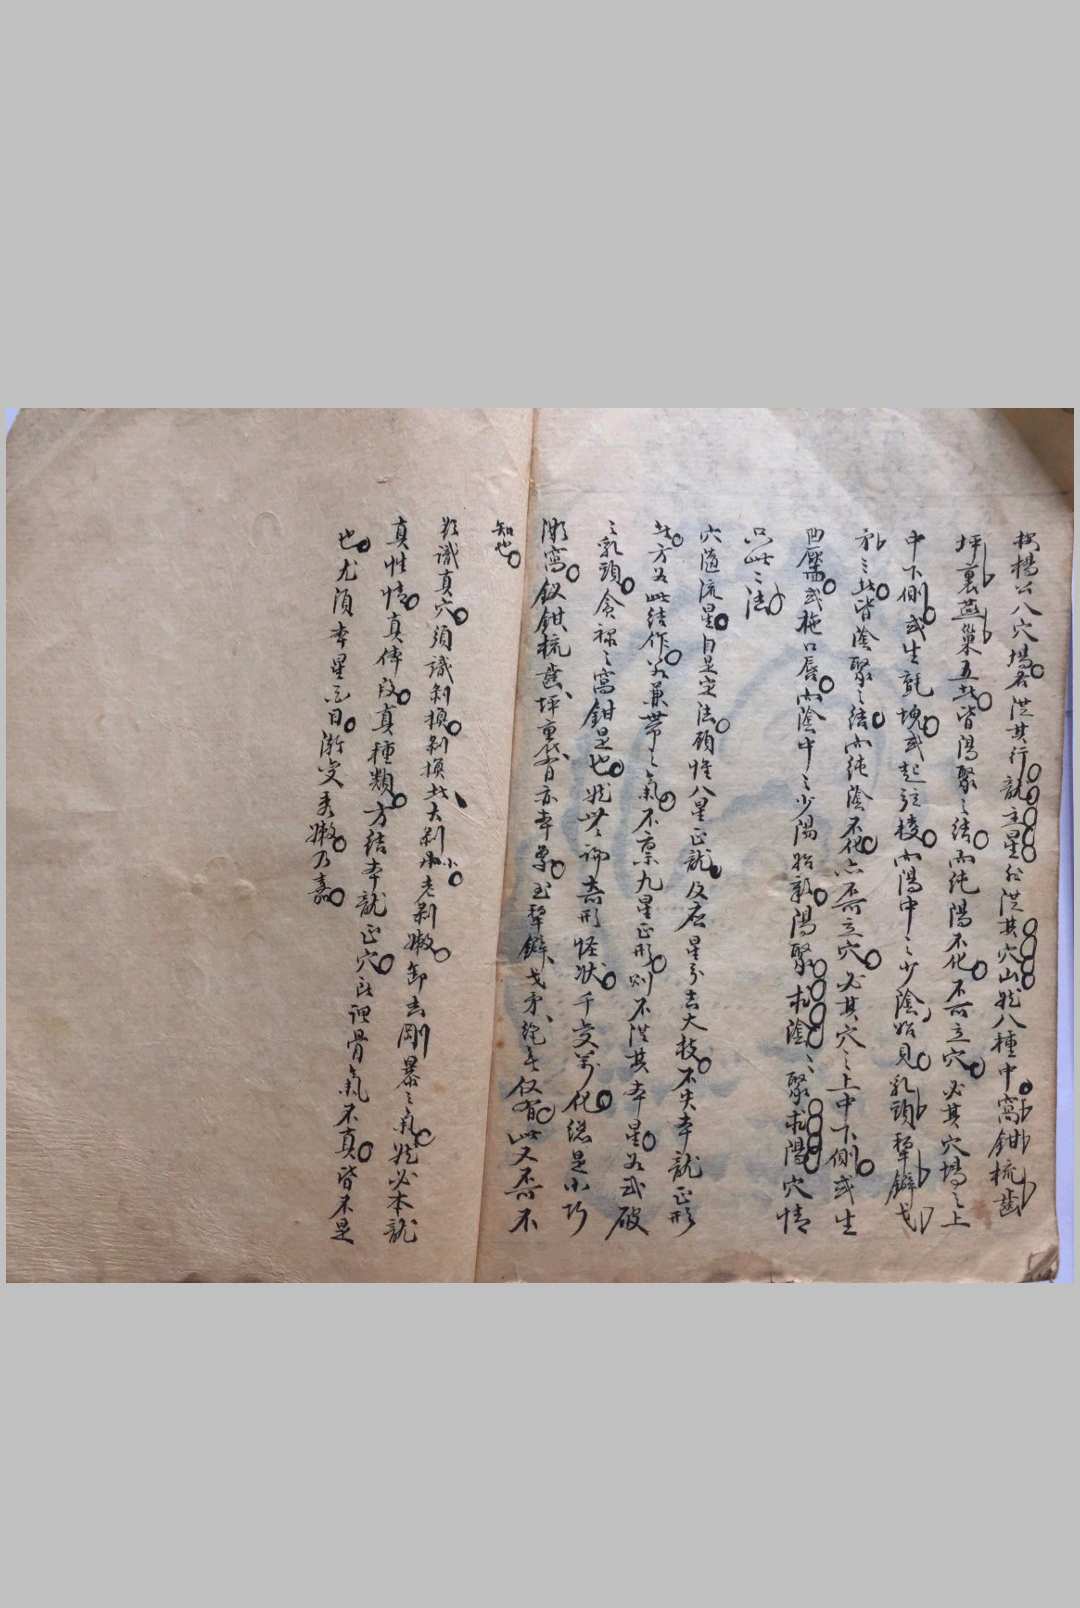 按楊公八穴場者從其行龍主星非從其穴山然八種中窩鉗梳齒
坪裏燕巢五者皆陽聚之結而純陽不化不可立穴必其穴場之上
中下側或生氈塊或起弦稜而陽中之少陰始見乳頭犁鐴戈
矛之者皆陰聚之結而純陰不化亦不可立穴必其穴之上中下側或生
凹靨或拖口唇而陰中之少陽始親陽聚求陰陰聚求陽穴情
只此之法
穴隨流星自是定法頋惟八星正龍及應星分吉大枝不失本龍正形
者方為此結作若兼帶之氣不稟九星正形則不從其本星若或破
之乳頭貪祿之窩鉗是也然此論奇形怪狀千变萬化總是小巧
窩釵鉗梳齒坪亦本犁鐴戈矛僅有此又不可不
知也
欲識真穴須識剝換剝換者大剝小老剝嫩卸去剛暴之氣然必本龍
真性情真傳段真種類方結本龍正穴骨氣不真皆不是
也尤須本星面目漸变秀嫩乃嘉